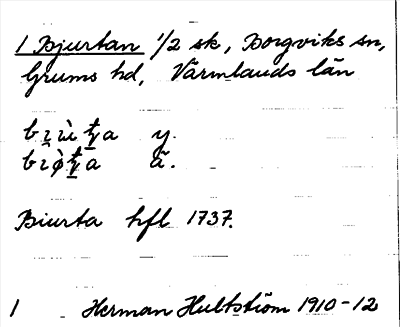 1 Bjurtan 1/2 sk, Borgviks sn,
Grums hd, Värmlands län
y.
ä.
Biurta hfl 1737.
1 Herman Hultström 1910-12